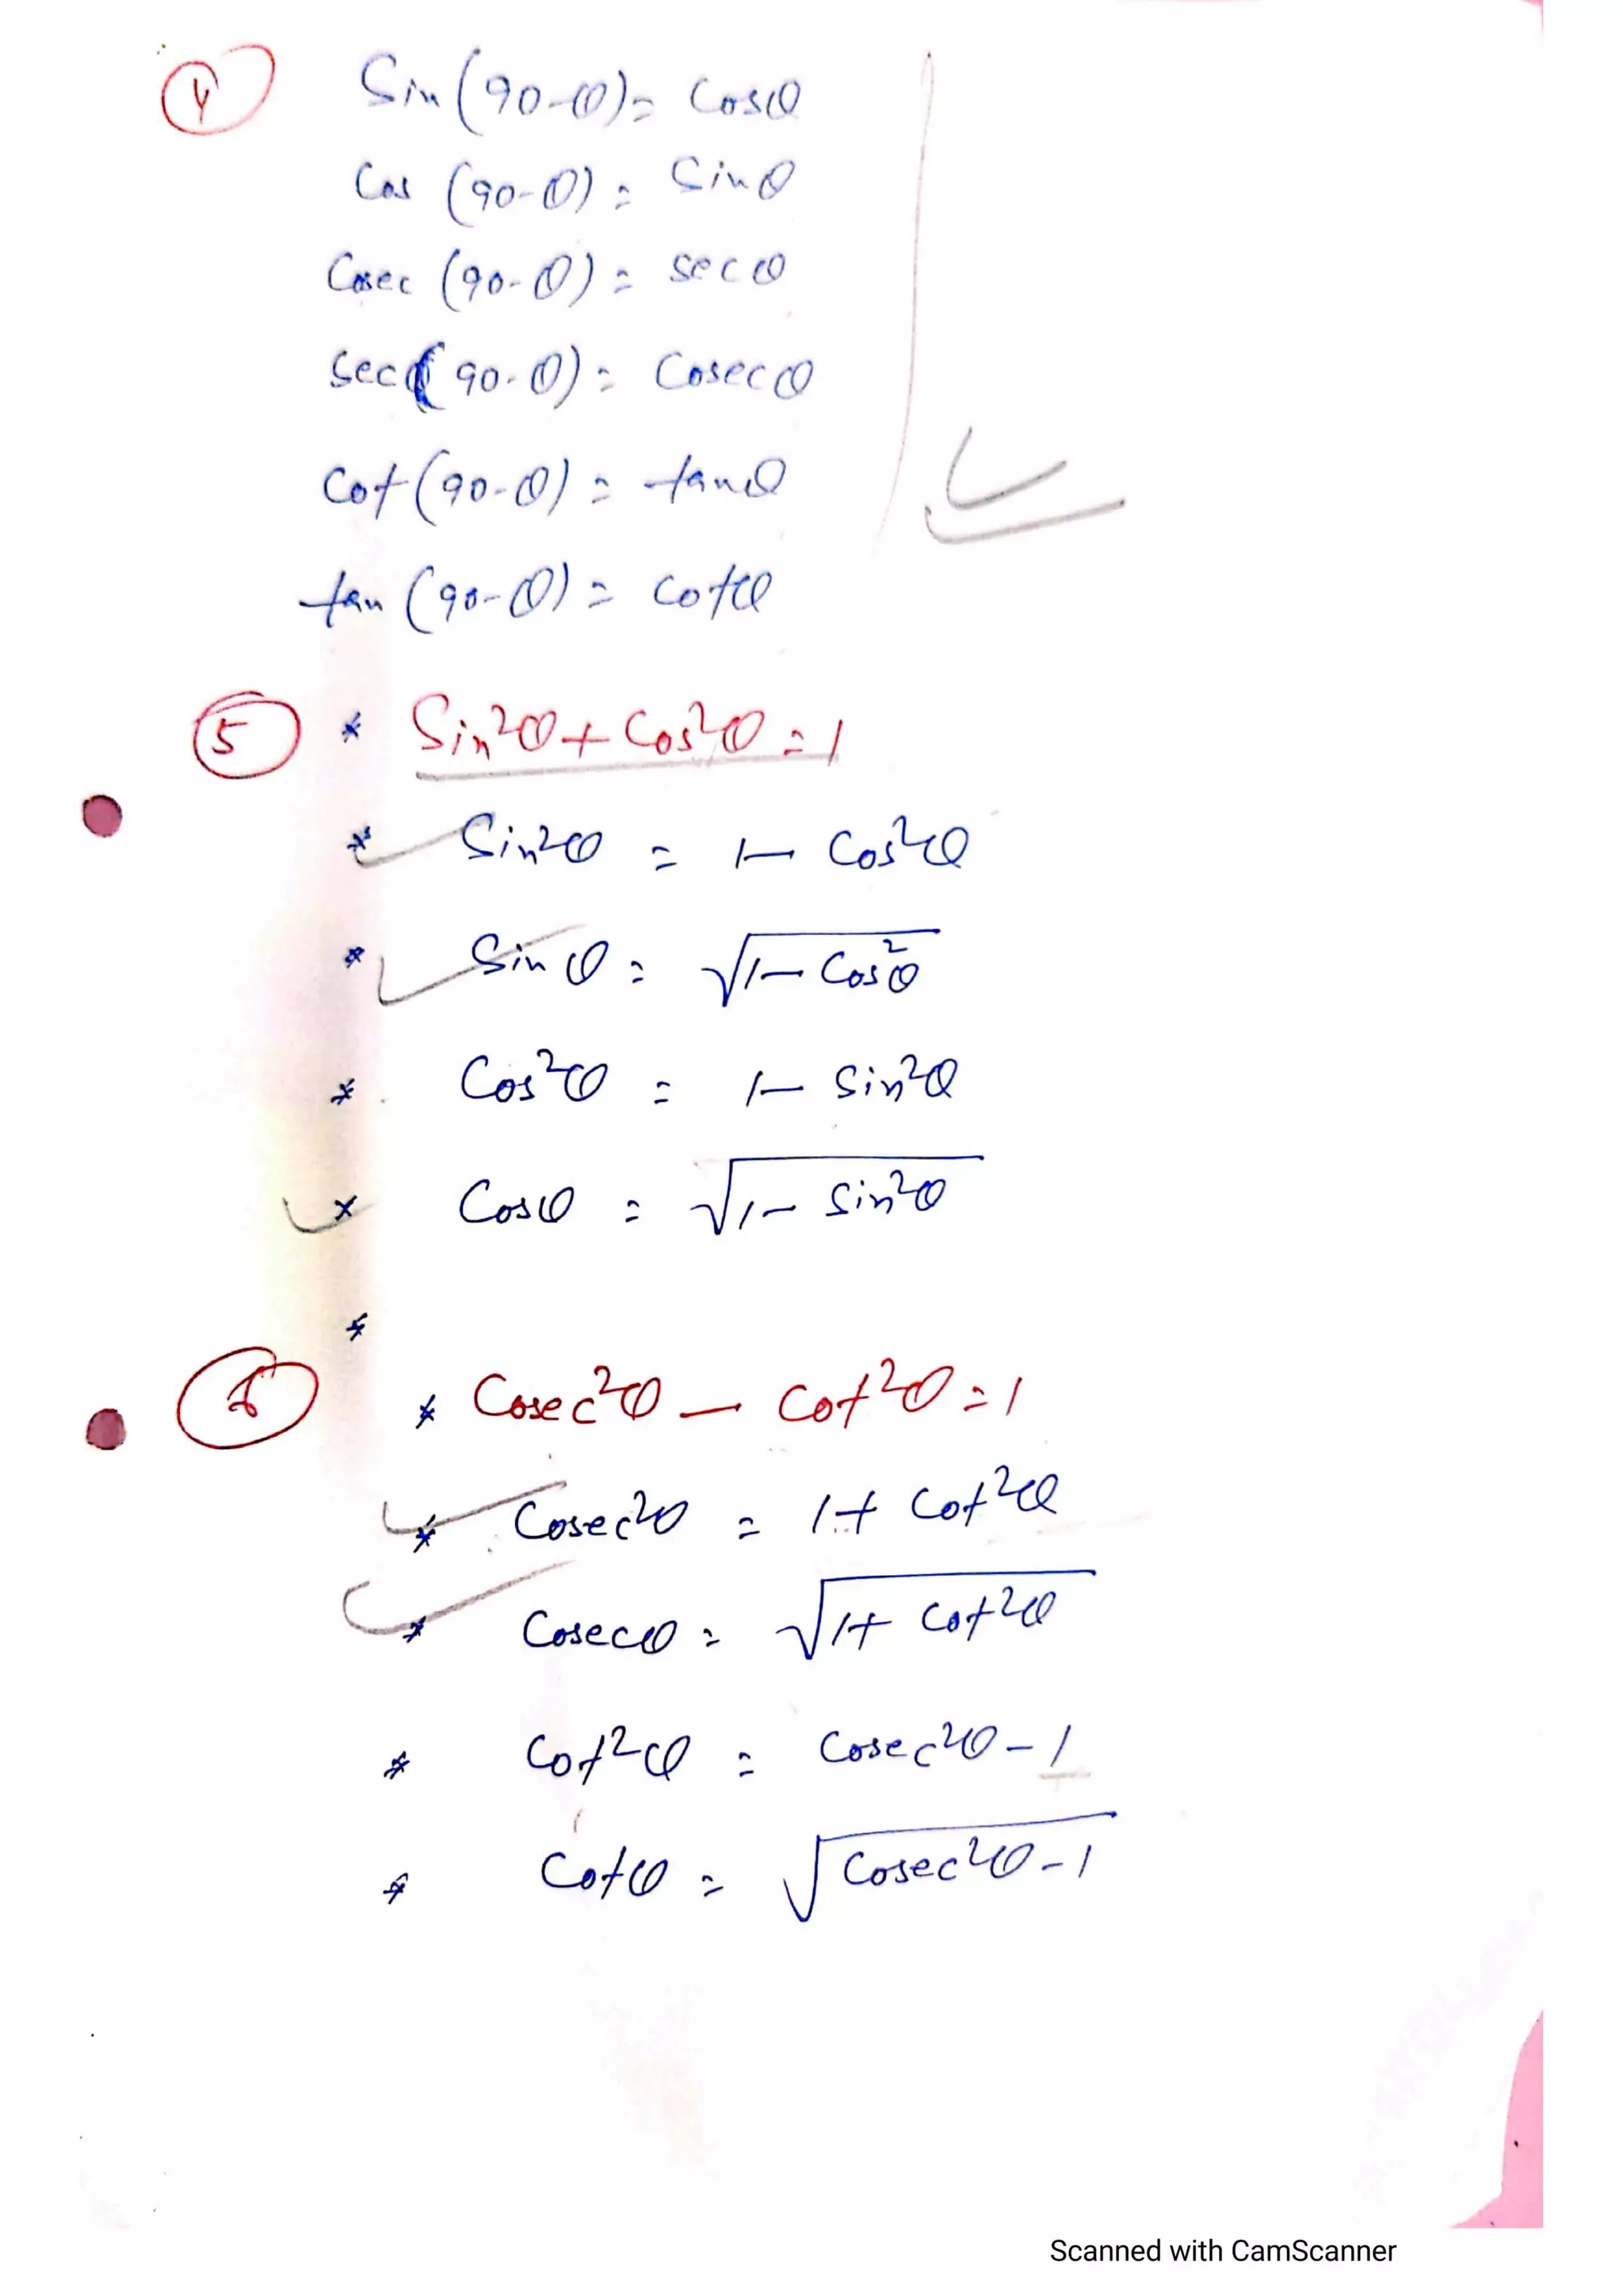 ④ Sin (90-θ) = Cosθ
Cos (90-θ) = Sinθ
Cosec (90-θ) = secθ
Sec (90-θ) = Cosecθ
Cot (90-θ) = tanθ
tan (90-θ) = cotθ
⑤ * Sin²θ + Cos²θ = 1
* Sin²θ = 1 - Cos²θ
* Sinθ = √1 - Cos²θ
* Cos²θ = 1 - Sin²θ
* Cosθ = √1 - Sin²θ
*
⑥ * Cosec²θ - Cot²θ = 1
* Cosec²θ = 1 + Cot²θ
* Cosecθ = √1 + Cot²θ
* Cot²θ = Cosec²θ - 1
* Cotθ = √Cosec²θ - 1
Scanned with CamScanner